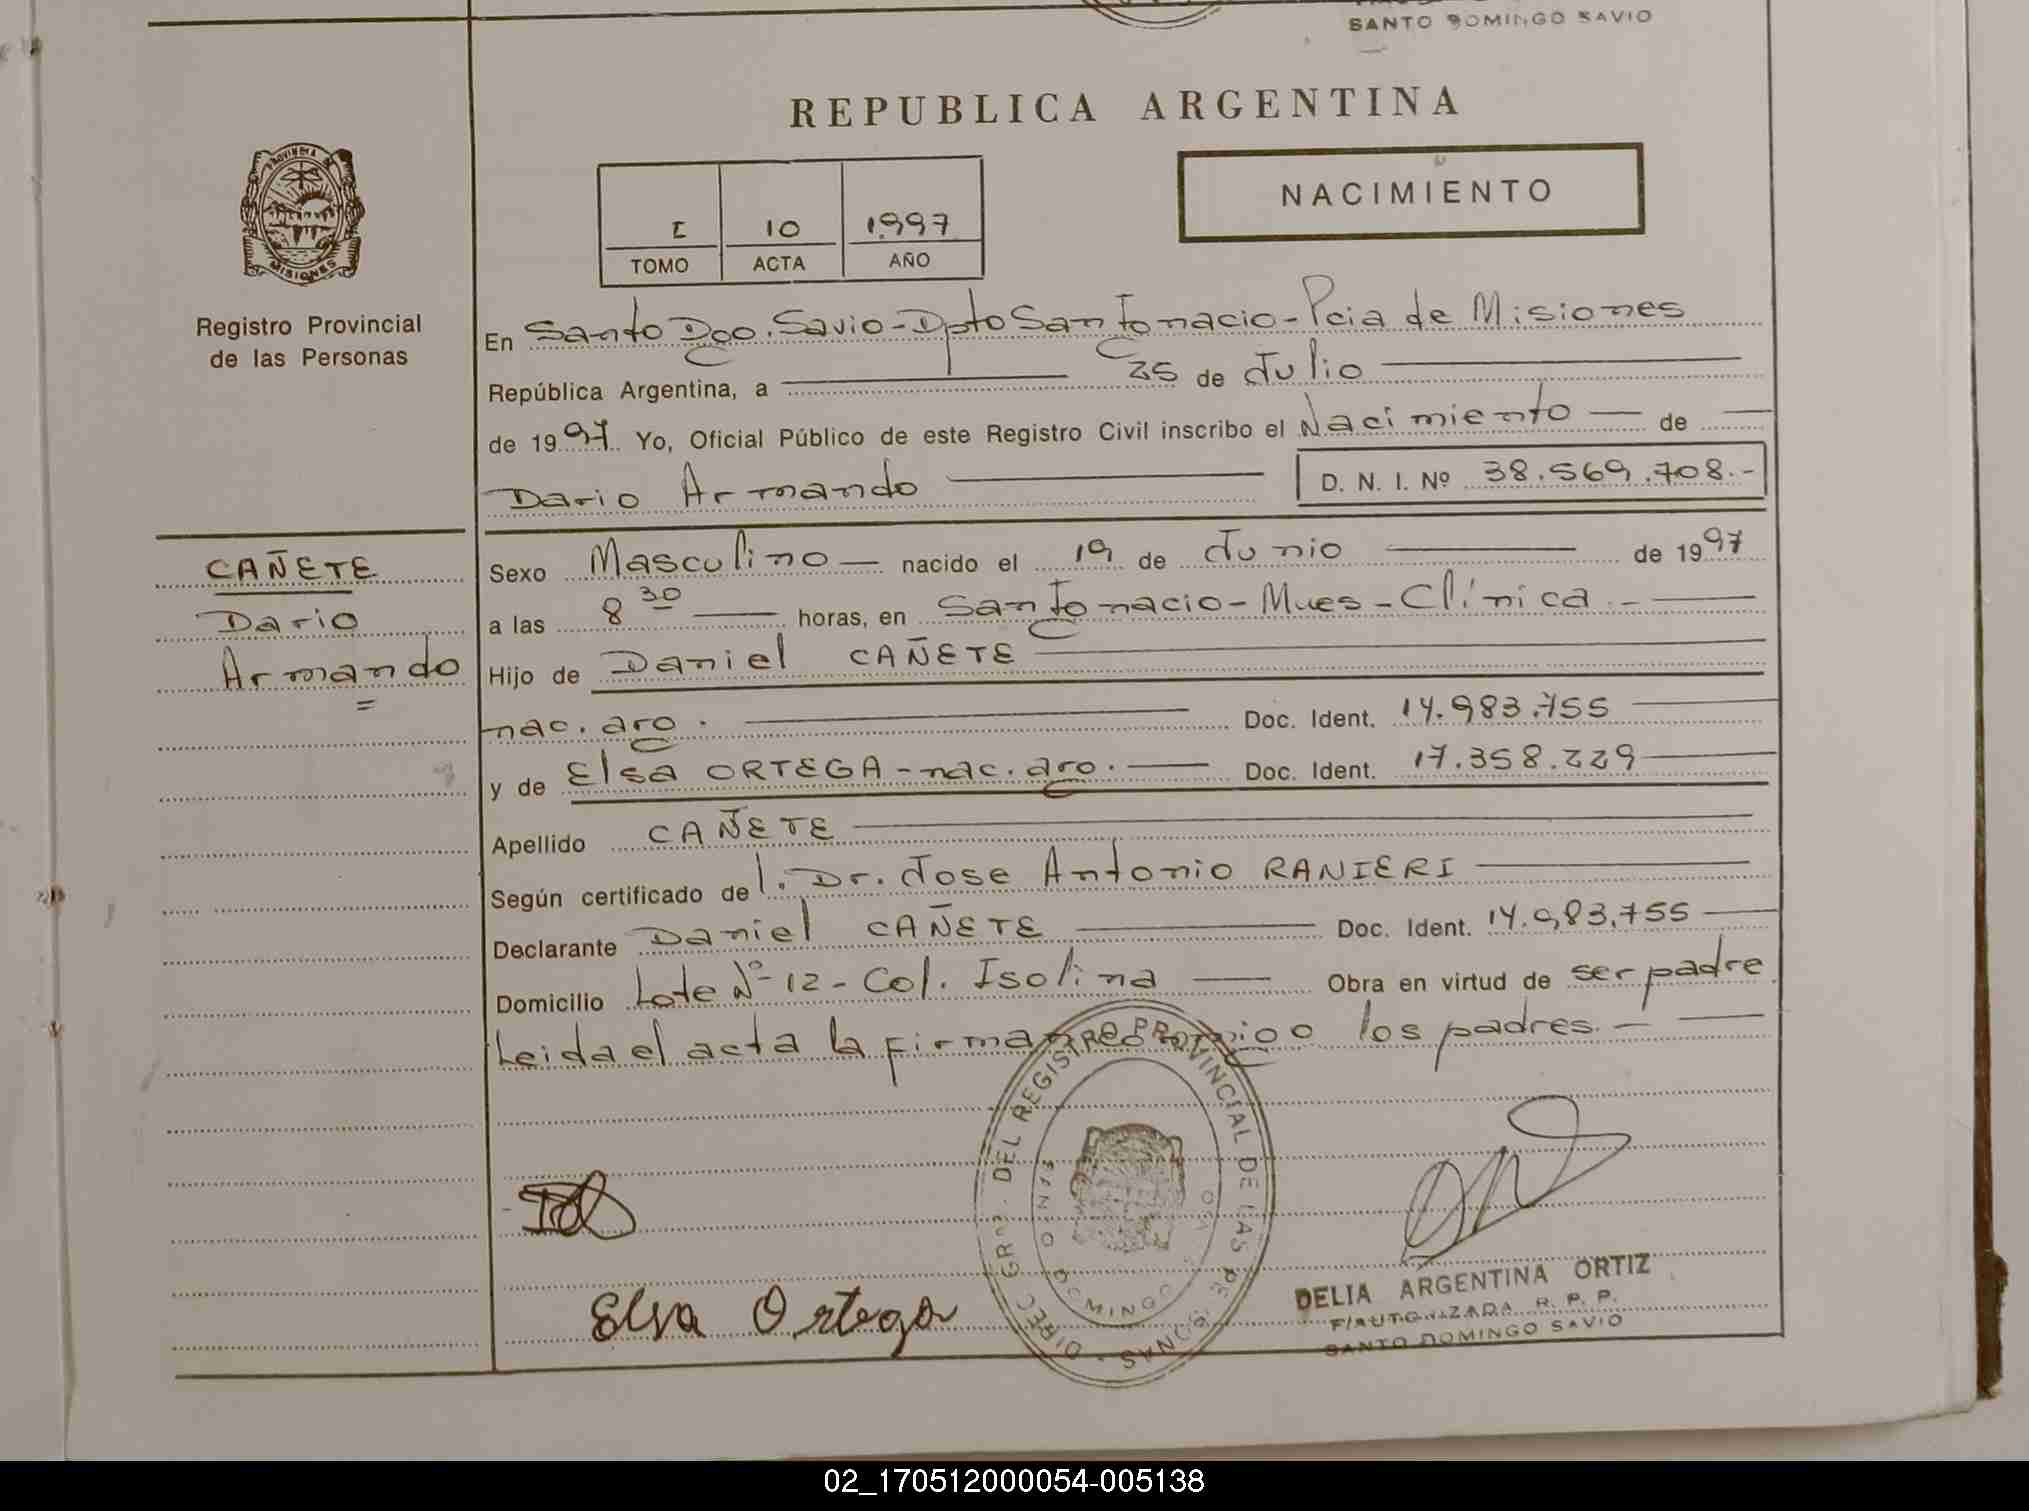 SANTO DOMINGO SAVIO
REPUBLICA ARGENTINA
PROVINCIA DE
MISIONES
Registro Provincial
de las Personas
I 10 1997
TOMO ACTA AÑO
NACIMIENTO
En Santo Dgo. Savio - Dpto San Ignacio - Pcia de Misiones
República Argentina, a 25 de Julio
de 1997 Yo, Oficial Público de este Registro Civil inscribo el Nacimiento de
Dario Armando D. N. I. Nº 38.569.708.-
CAÑETE
Dario
Armando
Sexo Masculino nacido el 19 de Junio de 1997
a las 8 30 horas, en San Ignacio - Mnes - Clínica.-
Hijo de Daniel CAÑETE
nac. arg. Doc. Ident. 14.983.755
y de Elsa ORTEGA - nac. arg. Doc. Ident. 17.358.229
Apellido CAÑETE
Según certificado de l. Dr. Jose Antonio RANIERI
Declarante Daniel CAÑETE Doc. Ident. 14.983.755
Domicilio Lote Nº 12 - Col. Isolina Obra en virtud de ser padre
Leida el acta la firman conmigo los padres.-
DIREC. GRAL. DEL REGISTRO PROVINCIAL DE LAS PERSONAS
SANTO DOMINGO SAVIO
Elsa Ortega
DELIA ARGENTINA ORTIZ
F/AUTORIZADA R. P. P.
SANTO DOMINGO SAVIO
02_170512000054-005138